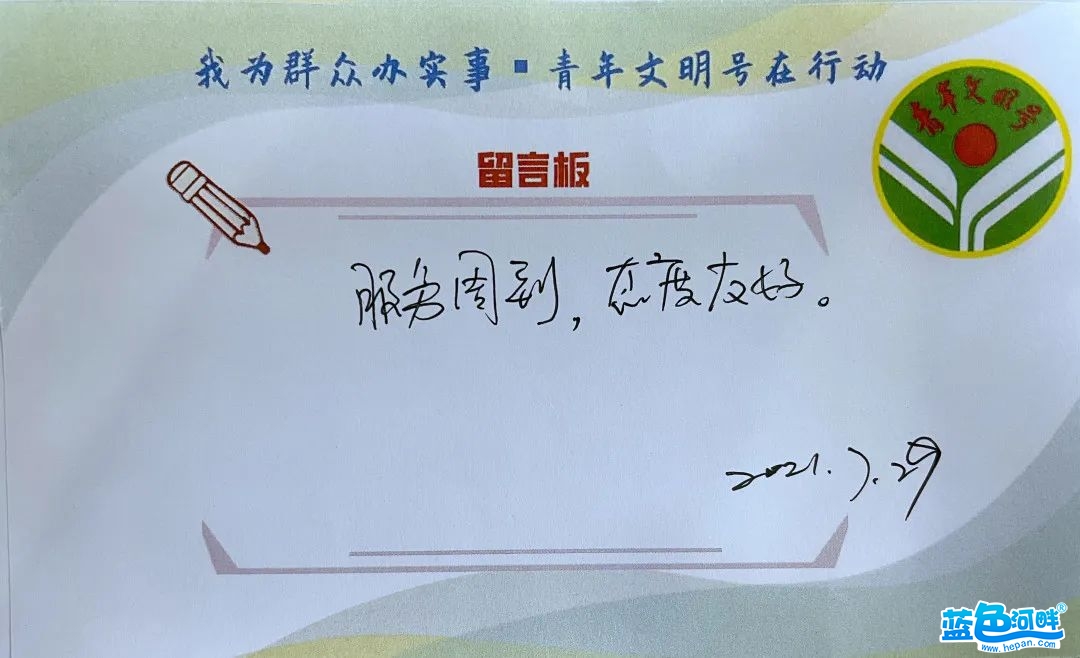 我为群众办实事·青年文明号在行动
青年文明号
留言板
服务周到，态度友好。
2021.7.29
蓝色河畔®
www.hepan.com